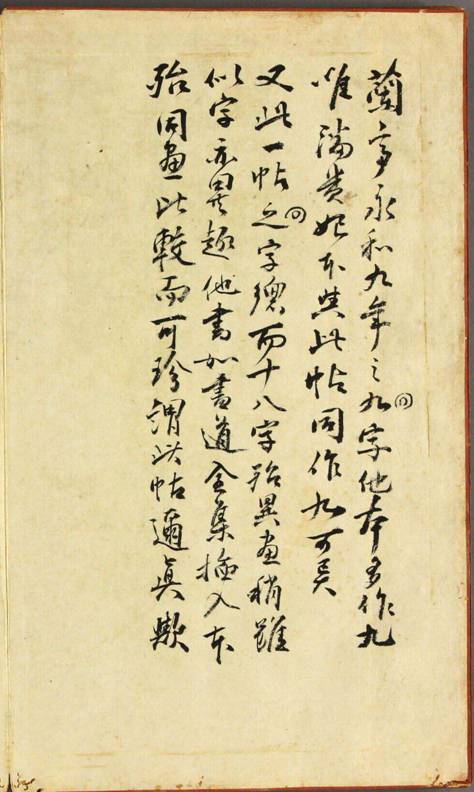 蘭亭永和九年之九字他本多作九
唯潘貴妃本與此帖同作九可異
又此一帖之字總而十八字殆異畫稍雖
似字亦異趣他書如書道全集挿入本
殆同畫比較而可珍謂此帖邇眞歟